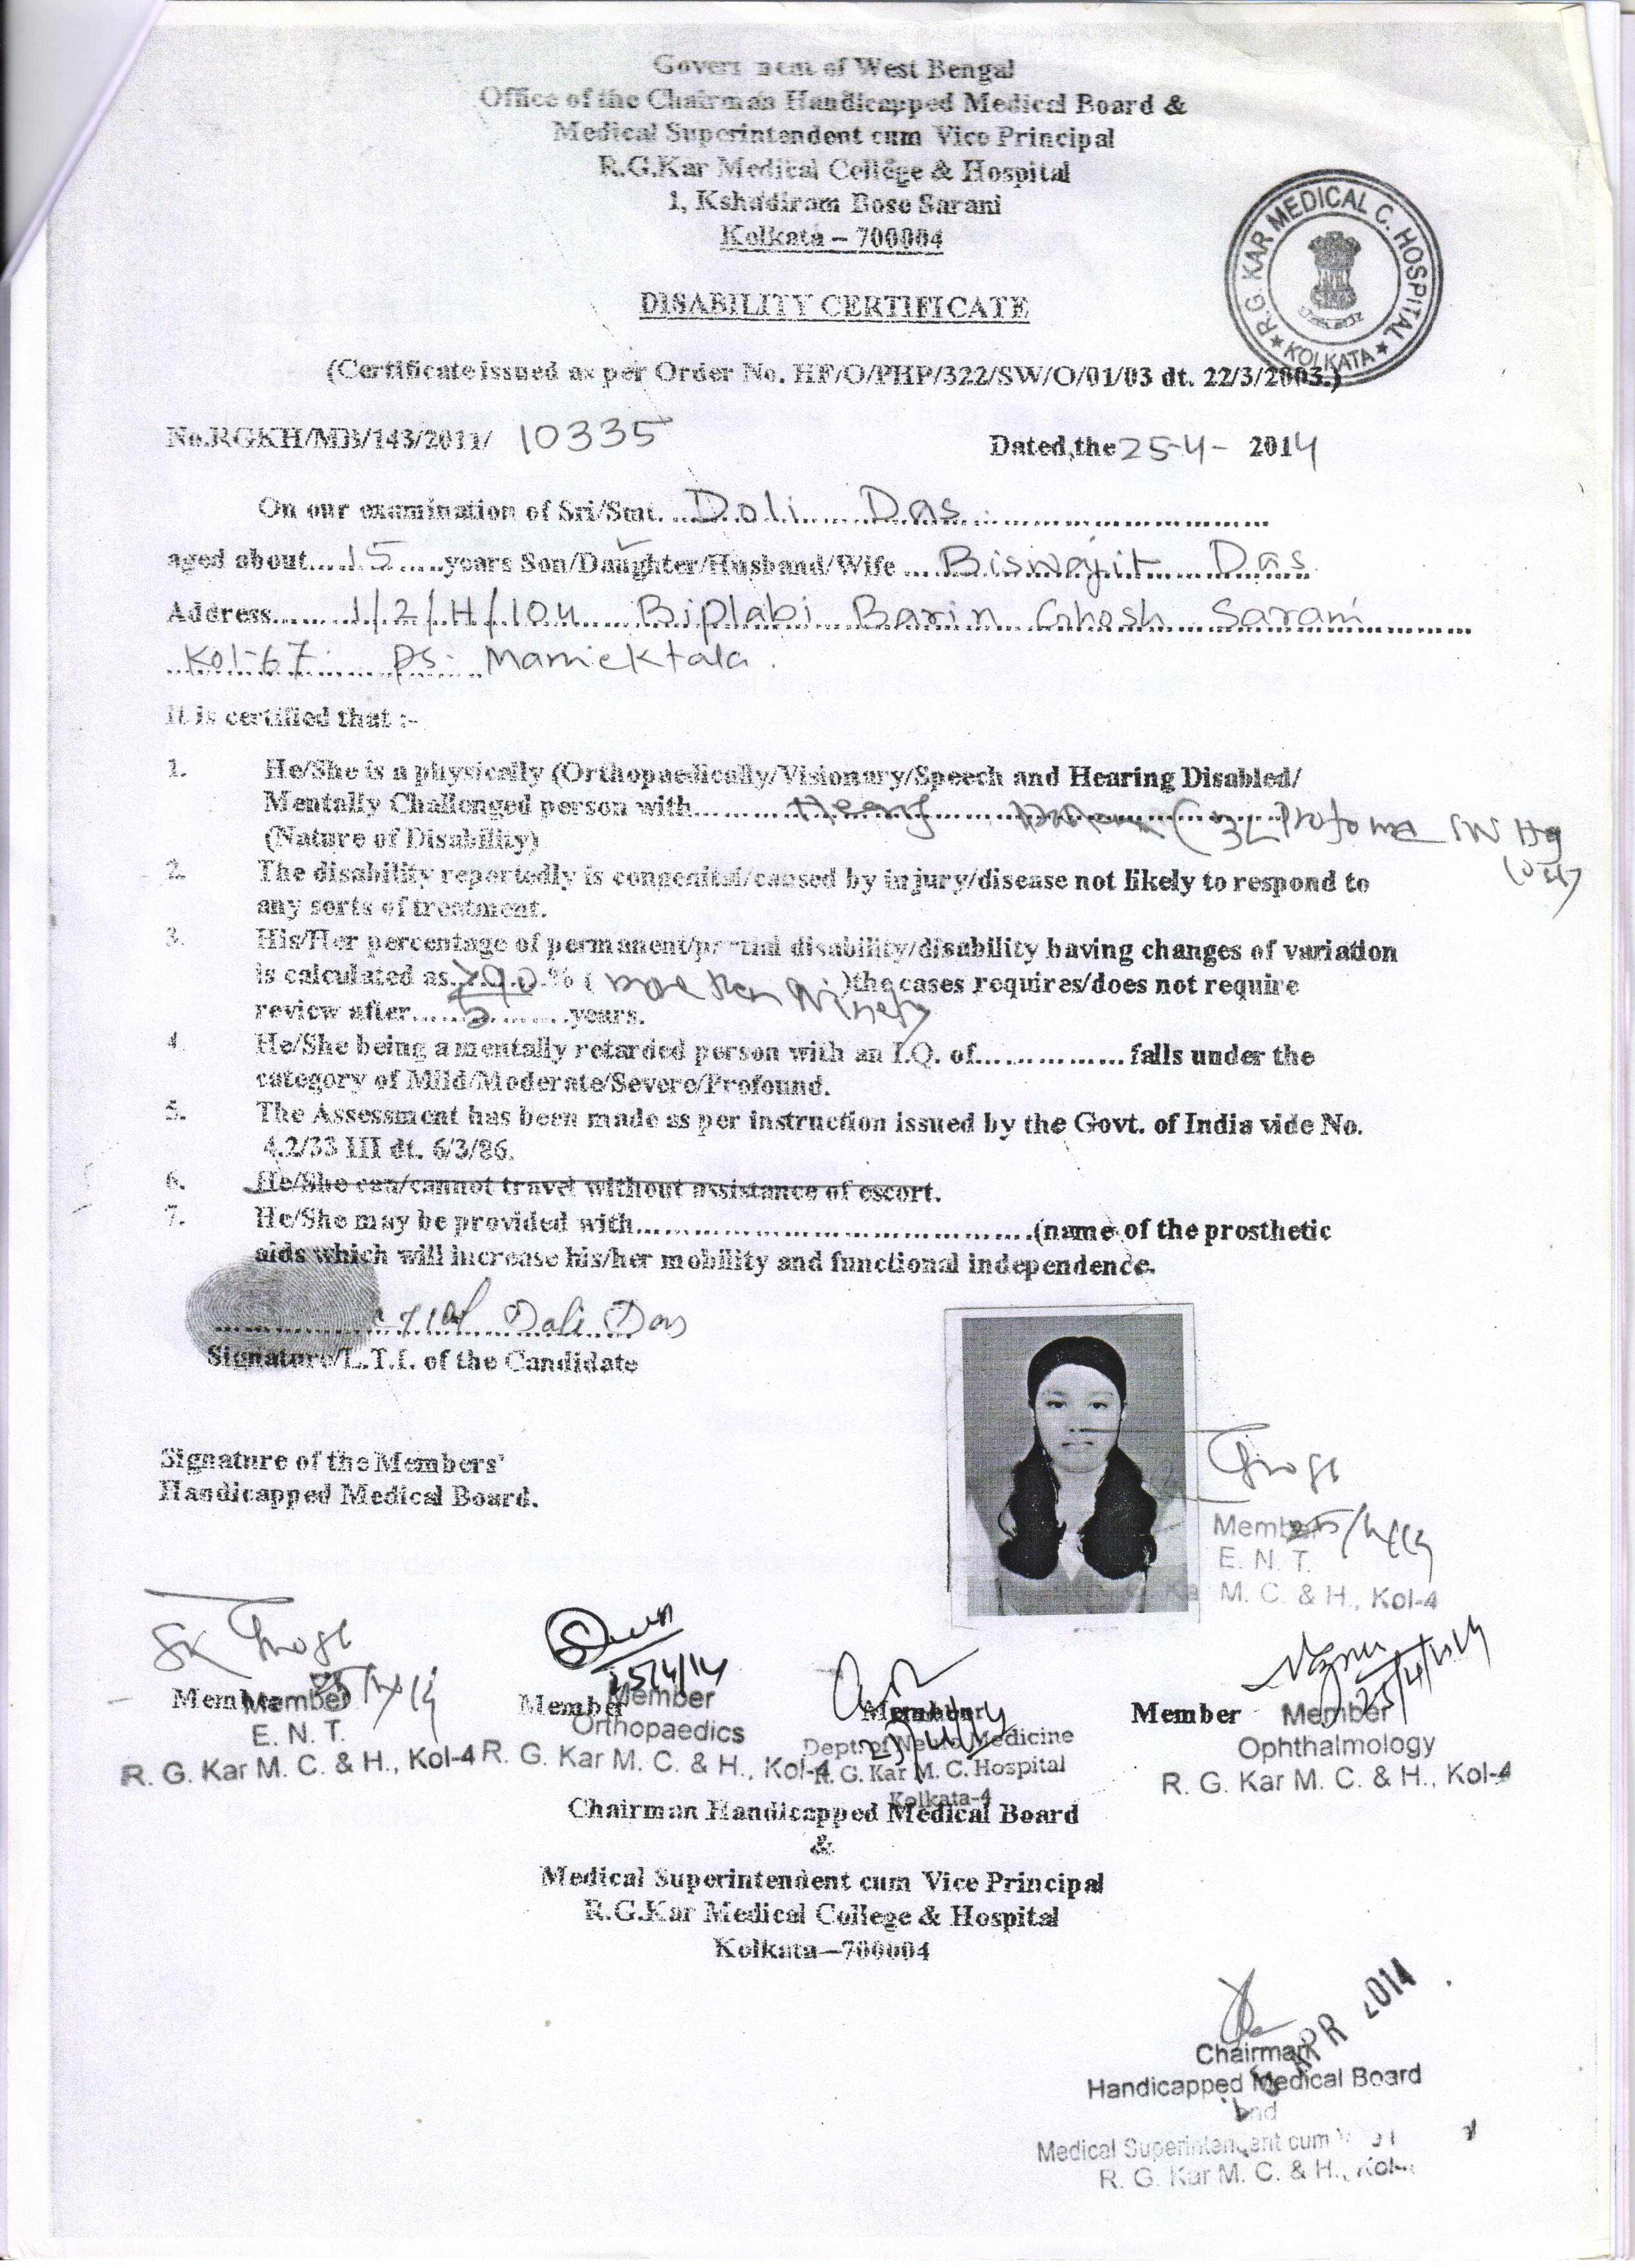 Government of West Bengal
Office of the Chairman Handicapped Medical Board &
Medical Superintendent cum Vice Principal
R.G.Kar Medical College & Hospital
1, Kshudiram Bose Sarani
Kolkata – 700004
R.G. KAR MEDICAL C. HOSPITAL
★ KOLKATA ★
DISABILITY CERTIFICATE
(Certificate issued as per Order No. HF/O/PHP/322/SW/O/01/03 dt. 22/3/2003.)
No.RGKH/MB/143/2011/ 10335 Dated,the 25-4- 2014
On our examination of Sri/Smt. Doli Das
aged about 15 years Son/Daughter/Husband/Wife Biswajit Das
Address 1/2/H/104 Biplabi Barin Ghosh Sarani
Kol-67. PS- Manicktala.
It is certified that :-
1. He/She is a physically (Orthopaedically/Visionary/Speech and Hearing Disabled/
Mentally Challenged person with
(Nature of Disability)
2. The disability reportedly is congenital/caused by injury/disease not likely to respond to
any sorts of treatment.
3. His/Her percentage of permanent/partial disability/disability having changes of variation
is calculated as >90 % ( more than Ninety )the cases requires/does not require
review after 5 years.
4. He/She being a mentally retarded person with an I.Q. of............... falls under the
category of Mild/Moderate/Severe/Profound.
5. The Assessment has been made as per instruction issued by the Govt. of India vide No.
4.2/33 III dt. 6/3/86.
6. He/She can/cannot travel without assistance of escort.
7. He/She may be provided with.......................................(name of the prosthetic
aids which will increase his/her mobility and functional independence.
Dali Das
Signature/L.T.I. of the Candidate
Signature of the Members'
Handicapped Medical Board.
Member
E. N. T.
M. C. & H., Kol-4
25/4/14
Member Member Member Member
Member
E. N. T.
R. G. Kar M. C. & H., Kol-4
Member
Orthopaedics
R. G. Kar M. C. & H., Kol-4
Dept. of Neuro Medicine
R. G. Kar M. C. Hospital
Kolkata-4
Member
Ophthalmology
R. G. Kar M. C. & H., Kol-4
Chairman Handicapped Medical Board
&
Medical Superintendent cum Vice Principal
R.G.Kar Medical College & Hospital
Kolkata–700004
APR 2014
Chairman
Handicapped Medical Board
and
Medical Superintendent cum
R. G. Kar M. C. & H., Kol-